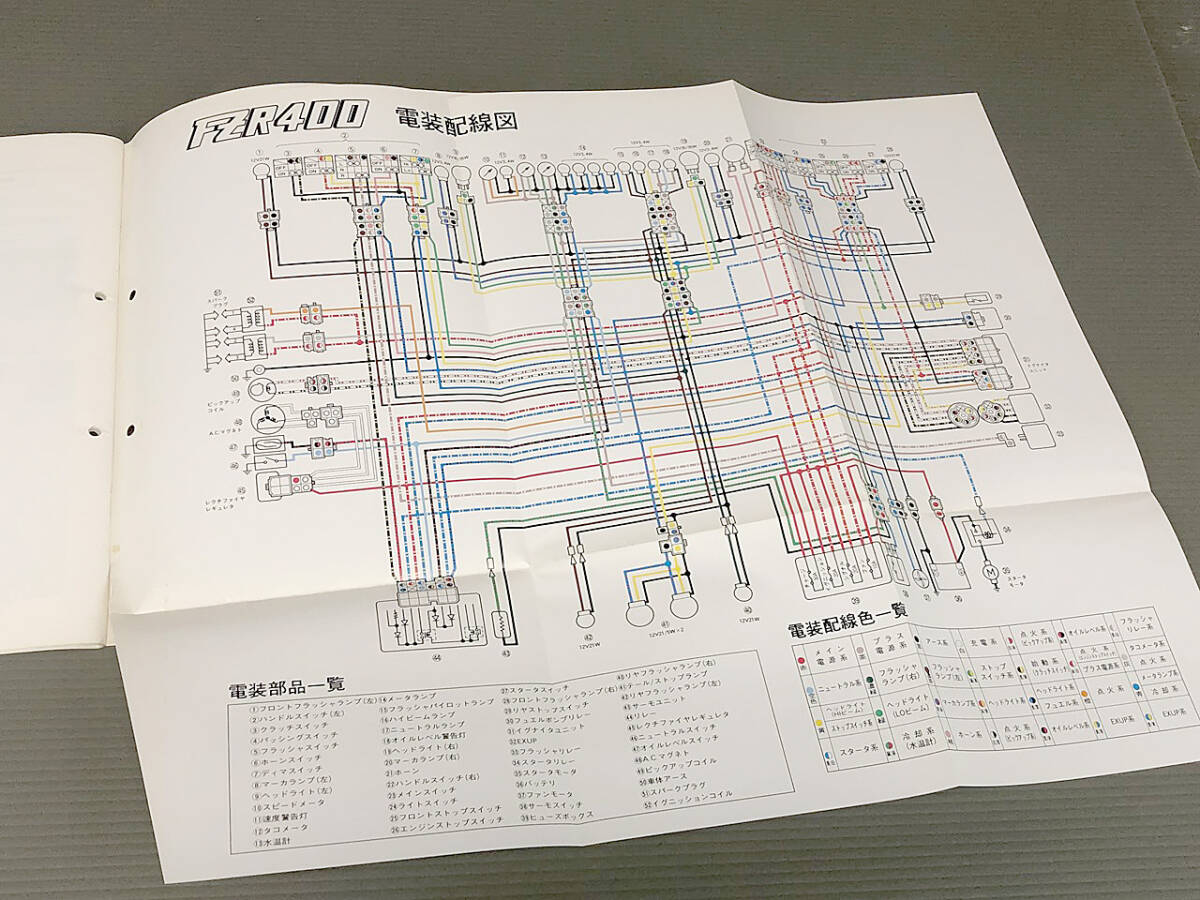 FZR400 電装配線図
スパーク
プラグ
ピックアップ
コイル
A.C.マグネト
レクチファイヤ
レギュレタ
イグナイタ
ユニット
スタータ
モータ
12V21W
12V21/5W×2
12V21W
電装部品一覧
①フロントフラッシャランプ(左)
②ハンドルスイッチ(左)
③クラッチスイッチ
④パッシングスイッチ
⑤フラッシャスイッチ
⑥ホーンスイッチ
⑦ディマスイッチ
⑧マーカランプ(左)
⑨ヘッドライト(左)
⑩スピードメータ
⑪速度警告灯
⑫タコメータ
⑬水温計
⑭メータランプ
⑮フラッシャパイロットランプ
⑯ハイビームランプ
⑰ニュートラルランプ
⑱オイルレベル警告灯
⑲ヘッドライト(右)
⑳マーカランプ(右)
㉑ホーン
㉒ハンドルスイッチ(右)
㉓メインスイッチ
㉔ライトスイッチ
㉕フロントストップスイッチ
㉖エンジンストップスイッチ
㉗スタータスイッチ
㉘フロントフラッシャランプ(右)
㉙リヤストップスイッチ
㉚フュエルポンプリレー
㉛イグナイタユニット
㉜EXUP
㉝フラッシャリレー
㉞スタータリレー
㉟スタータモータ
㊱バッテリ
㊲ファンモータ
㊳サーモスイッチ
㊴ヒューズボックス
㊵リヤフラッシャランプ(右)
㊶テール/ストップランプ
㊷リヤフラッシャランプ(左)
㊸サーモユニット
㊹リレー
㊺レクチファイヤレギュレタ
㊻ニュートラルスイッチ
㊼オイルレベルスイッチ
㊽ACマグネト
㊾ピックアップコイル
㊿車体アース
51スパークプラグ
52イグニッションコイル
電装配線色一覧
メイン電源系
プラス電源系
アース系
充電系
点火系(ピックアップ系)
オイルレベル系
フラッシャリレー系
ニュートラル系
フラッシャランプ(右)
フラッシャランプ(左)
ストップスイッチ系
始動系(クラッチスイッチ)
点火系
タコメータ系
ヘッドライト(HIビーム)
ヘッドライト(LOビーム)
マーカランプ系
ヘッドライト系
ヘッドライト系
プラス電源系
点火系
ストップスイッチ系
フュエル系
点火系
メータランプ系
冷却系
スタータ系
冷却系(水温計)
ホーン系
点火系(ピックアップ系)
オイルレベル系
EXUP系
EXUP系